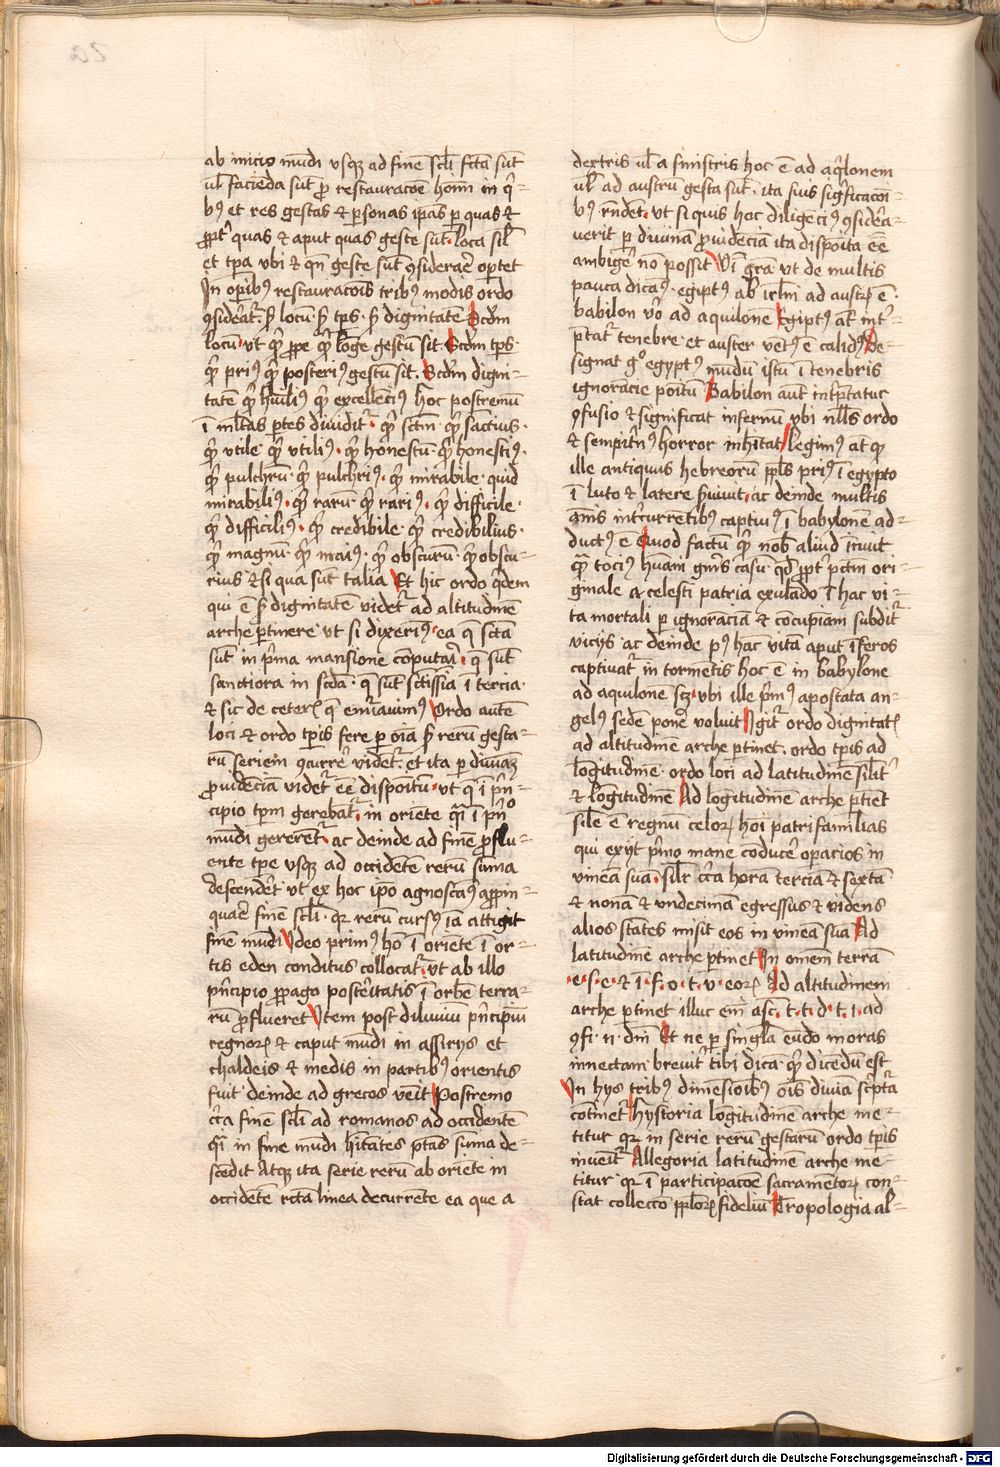 ab inicio mūdi vsqz ad finē scl̄i fctā sūt
ul̄ faciēda sūt ꝓ restauracōe homī in qͥ-
bꝰ et res gestas ⁊ ꝑsonas ip̄as ꝑ quas ⁊
ꝓpt̄ quas ⁊ aput quas geste sūt · loca sil̄
et tꝑa vbi ⁊ qn̄ geste sūt ꝯsideraē oꝑtet
In oꝑibꝰ restauracōis tribꝰ modis ordo
ꝯsideāt᷑ · ẜ locū · ẜ tp̄s · ẜ dignitatē Scd̄m
locū · vt qͥ ꝓpe qͥ lōge gestū sit · Scd̄m tp̄s ·
qͥ priꝰ qͥ posteriꝰ gestū sit · Scd̄m digni-
tatē qͥ hūiliꝰ qͥ excellēciꝰ hoc postremū
ī ml̄tas ꝑtes diuidit᷑ · qͥ sctm̄ · qͥ sāctius ·
qͥ vtile qͥ vtiliꝰ · qͥ honestū · qͥ honestiꝰ ·
qͥ pulchrū · qͥ pulchriꝰ · qͥ mirabile · quid
mirabiliꝰ · qͥ rarū · qͥ rariꝰ · qͥ difficile ·
qͥ difficiliꝰ · qͥ credibile · qͥ credibilius ·
qͥ magnū · qͥ maiꝰ · qͥ obscurū · qͥ obscu-
rius ⁊ si qua sūt talia Et hic ordo qͥdem
qui ē ẜ dignitatē videt᷑ ad altitudinē
arche ꝑtinere vt si dixerīꝰ · ea q̄ sctā
sūt in pͥma mansione cōputaī · q̄ sūt
sanctiora in scdā · q̄ sūt sctīssīa ī tercia ·
⁊ sic de ceteꝝ q̄ enūauimꝰ Ordo autē
loci ⁊ ordo tꝑis fere ꝑ oīa ẜ rerū gesta-
rū seriem ꝯcurrē videt᷑ · et ita ꝑ diuinā
ꝓuidēciā videt᷑ eē dispoītū · vt q̄ ī pͥn-
cipio tp̄m gerebāt᷑ · in oriēte qͣi ī pͥnº
mūdi gererēt᷑ · ac deinde ad finē ꝓflu-
ente tꝑe vsqz ad occidētē rerū suma
descenderꝫ vt ex hoc ip̄o agnoscaꝰ aꝓpin-
quaē finē scl̄i · qꝛ rerū cursꝰ iā attigit
finē mūdi Ideo primꝰ hō ī oriēte ī or-
tis eden conditus collocat᷑ · vt ab illo
pͥncipio ꝓpago posteritatis ī orbē terra-
rū ꝓflueret Item post diluuiū pͥncipiū
regnoꝝ ⁊ caput mūdi in assirijs et
chaldeis ⁊ medis in partibꝰ orientis
fuit deinde ad grecos venit Postremo
cͥca finē scl̄i ad romanos ad occidentē
qͣi in fine mūdi hītātes ptās suma de-
scēdit Atqz ita serie rerū ab oriēte in
occidētē rctā linea decurrēte ea que a
dextris ul̄ a sinistris hoc ē ad aqͥlonem
ul̄ ad austrū gesta sūt · ita suis sigͥficacōi-
bꝰ rn̄dēt · vt si quis hac diligēciꝰ ꝯsidēa-
uerit ꝑ diuinā ꝓuidēciā ita dispoita eē
ambigē nō possit Uī grā vt de multis
pauca dicaꝰ · egiptꝰ ab irl̄m ad austꝝ ē ·
babilon v̄o ad aquilone Egiptꝰ at̄ intͥ-
ptat᷑ tenebre · et auster vētꝰ ē calidꝰ De-
signat gº egyptꝰ mūdū istū ī tenebris
ignoracie poitū Babilon aūt intͥptatur
ꝯfusio ⁊ significat infernū vbi nl̄ls ordo
⁊ sempitͥnꝰ horror inhitat Legimꝰ at qͥ
ille antiquus hebreorū ppl̄s priꝰ ī egypto
ī luto ⁊ latere ẜuiuit · ac deinde multis
ānis intͥcurrētibꝰ captiuꝰ ī babylonē ad-
ductꝰ ē Quod factū qͥ nob̄ aliud īnuit
qͣ tociꝰ hūani gn̄is casū · qd̄ ꝓpt pctm̄ ori-
ginale a celesti patria exulādo ī hac vi-
ta mortali ꝑ ignorāciā ⁊ cōcupiam subdit᷑
vicijs ac deinde pꝰ hāc vitā aput īferos
captiuat᷑ in tormētis hoc ē in babylone
ad aquilone sꝫ · vbi ille pͥmꝰ apostata an-
gelꝰ sedē ponē voluit Igit᷑ ordo dignitatꝭ
ad altitudinē arche ꝑtinet · ordo tꝑis ad
lōgitudinē · ordo loci ad latitudinē silit᷑
⁊ longitudinē Ad lōgitudinē arche ꝑtīet
sile ē regnū celoꝝ hōi patrifamilias
qui exijt pͥmo mane cōducē oparios in
vineā suā · sil̄r cͥca horā terciā ⁊ sextā
⁊ nonā ⁊ vndecimā egressus ⁊ videns
alios stātes misit eos in vineā suā Ad
latitudinē arche ꝑtinet In omēm terrā
· e · s · e · ⁊ ī · f · o · t · v · eoꝝ Ad altitudinem
arche ꝑtinet illuc em̄ asc̄ · t · t · d · t · i · ad
ꝯfi · n · dn̄i Et ne ꝑ singl̄a eūdo moras
innectam breuit᷑ tibi dicā qͥ dicēdū est
In hys tribꝰ dimēsioibꝰ oīs diuīa scͥptā
cōtinet᷑ hystoria lōgitudinē arche me-
titur qꝛ in serie rerū gestarū ordo tꝑis
inueīt᷑ Allegoria latitudinē arche me-
titur qꝛ ī participacōe sacramētoꝝ con-
stat collectō ppl̄oꝝ fideliū Tropologia al-
Digitalisierung gefördert durch die Deutsche Forschungsgemeinschaft - DFG